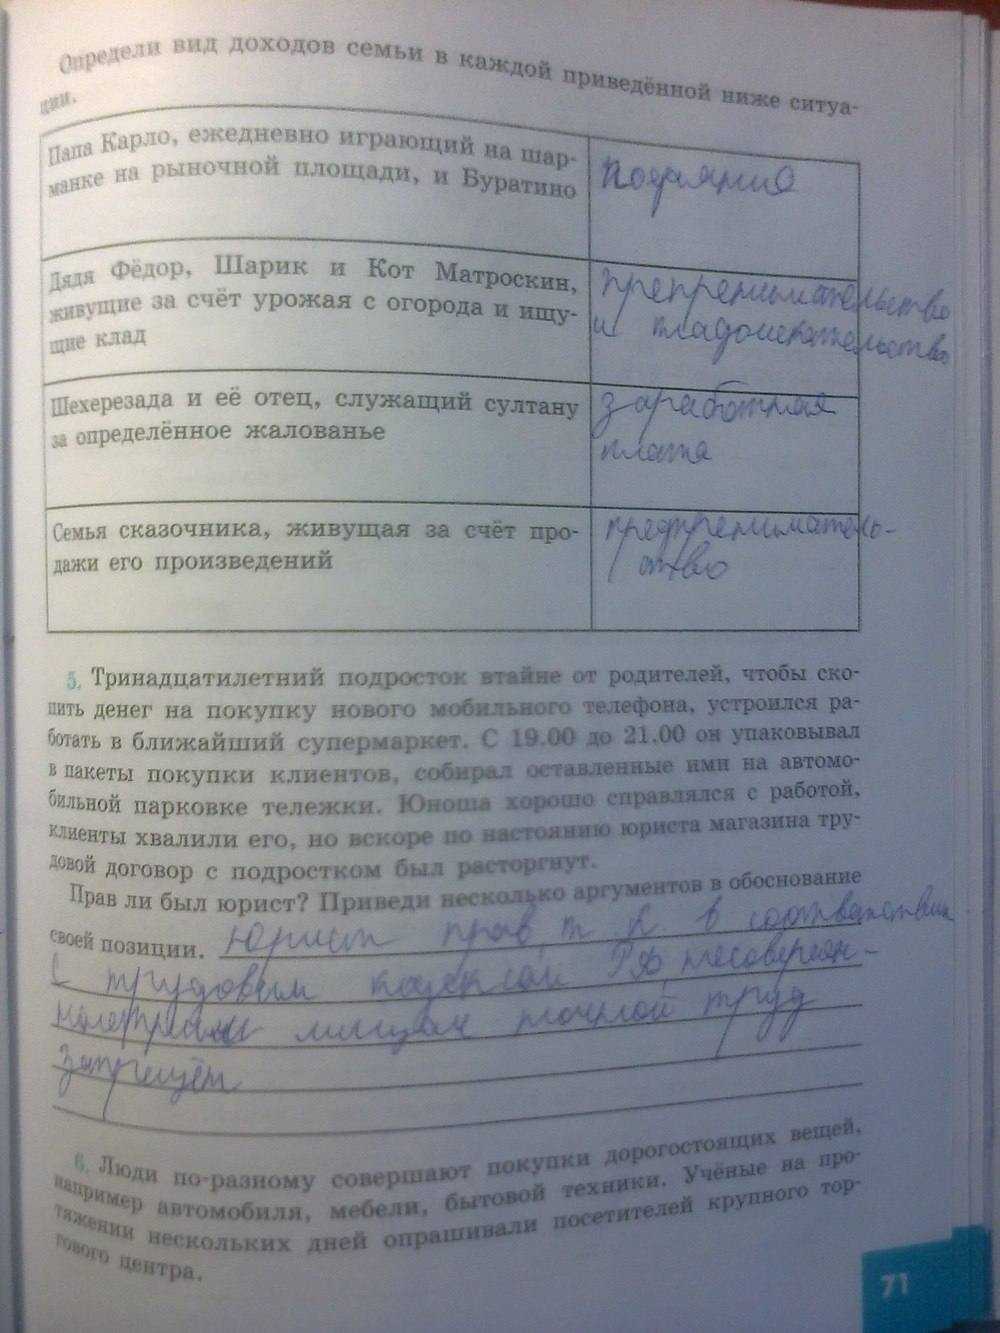 Определи вид доходов семьи в каждой приведённой ниже ситуа-
ции.
Папа Карло, ежедневно играющий на шар-
манке на рыночной площади, и Буратино
подаяние
Дядя Фёдор, Шарик и Кот Матроскин,
живущие за счёт урожая с огорода и ищу-
щие клад
препренимательство
и кладоискательство
Шехерезада и её отец, служащий султану
за определённое жалованье
заработная
плата
Семья сказочника, живущая за счёт про-
дажи его произведений
предпрениматель-
ство
5. Тринадцатилетний подросток втайне от родителей, чтобы ско-
пить денег на покупку нового мобильного телефона, устроился ра-
ботать в ближайший супермаркет. С 19.00 до 21.00 он упаковывал
в пакеты покупки клиентов, собирал оставленные ими на автомо-
бильной парковке тележки. Юноша хорошо справлялся с работой,
клиенты хвалили его, но вскоре по настоянию юриста магазина тру-
довой договор с подростком был расторгнут.
Прав ли был юрист? Приведи несколько аргументов в обоснование
своей позиции. Юрист прав т к в соответствии
с трудовым кодексом РФ несовершен-
нолетним лицам ночной труд
запрещён
6. Люди по-разному совершают покупки дорогостоящих вещей,
например автомобиля, мебели, бытовой техники. Учёные на про-
тяжении нескольких дней опрашивали посетителей крупного тор-
гового центра.
71